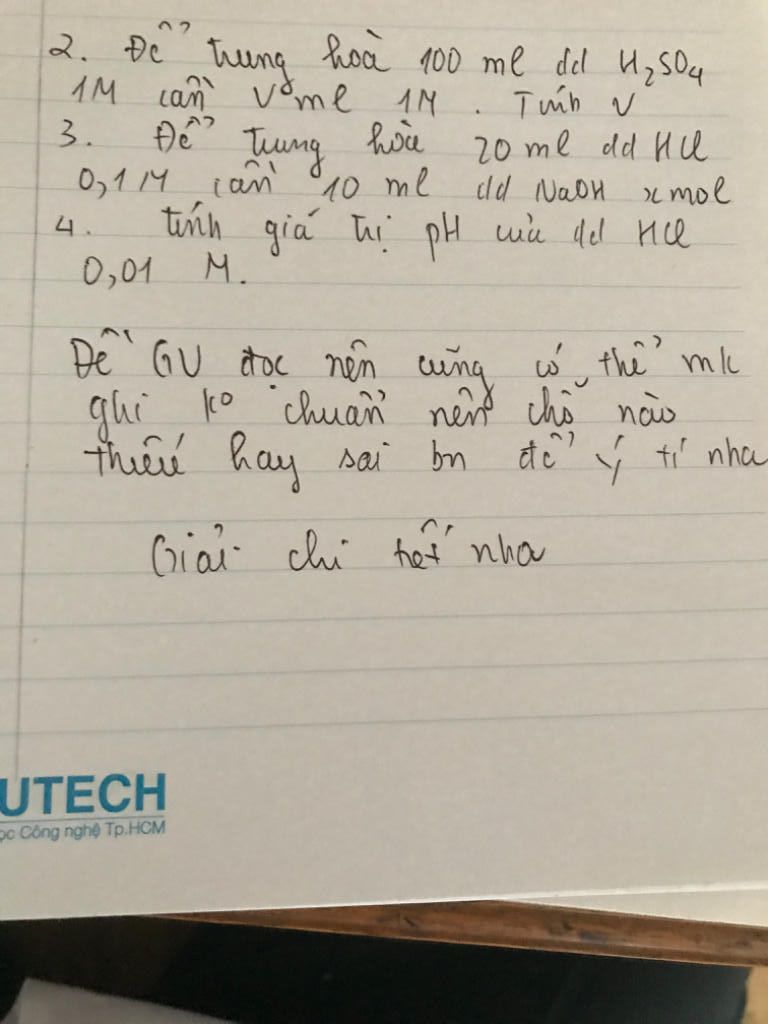 2. Để trung hoà 100 ml dd H₂SO₄
1M cần V ml 1M. Tính V
3. Để trung hòa 20 ml dd HCl
0,1 M cần 10 ml dd NaOH x mol
4. tính giá trị pH của dd HCl
0,01 M.
Đề GV đọc nên cũng có thể mk
ghi ko chuẩn nên chỗ nào
thiếu hay sai bn để ý tí nha
Giải chi tiết nha
UTECH
ọc Công nghệ Tp.HCM